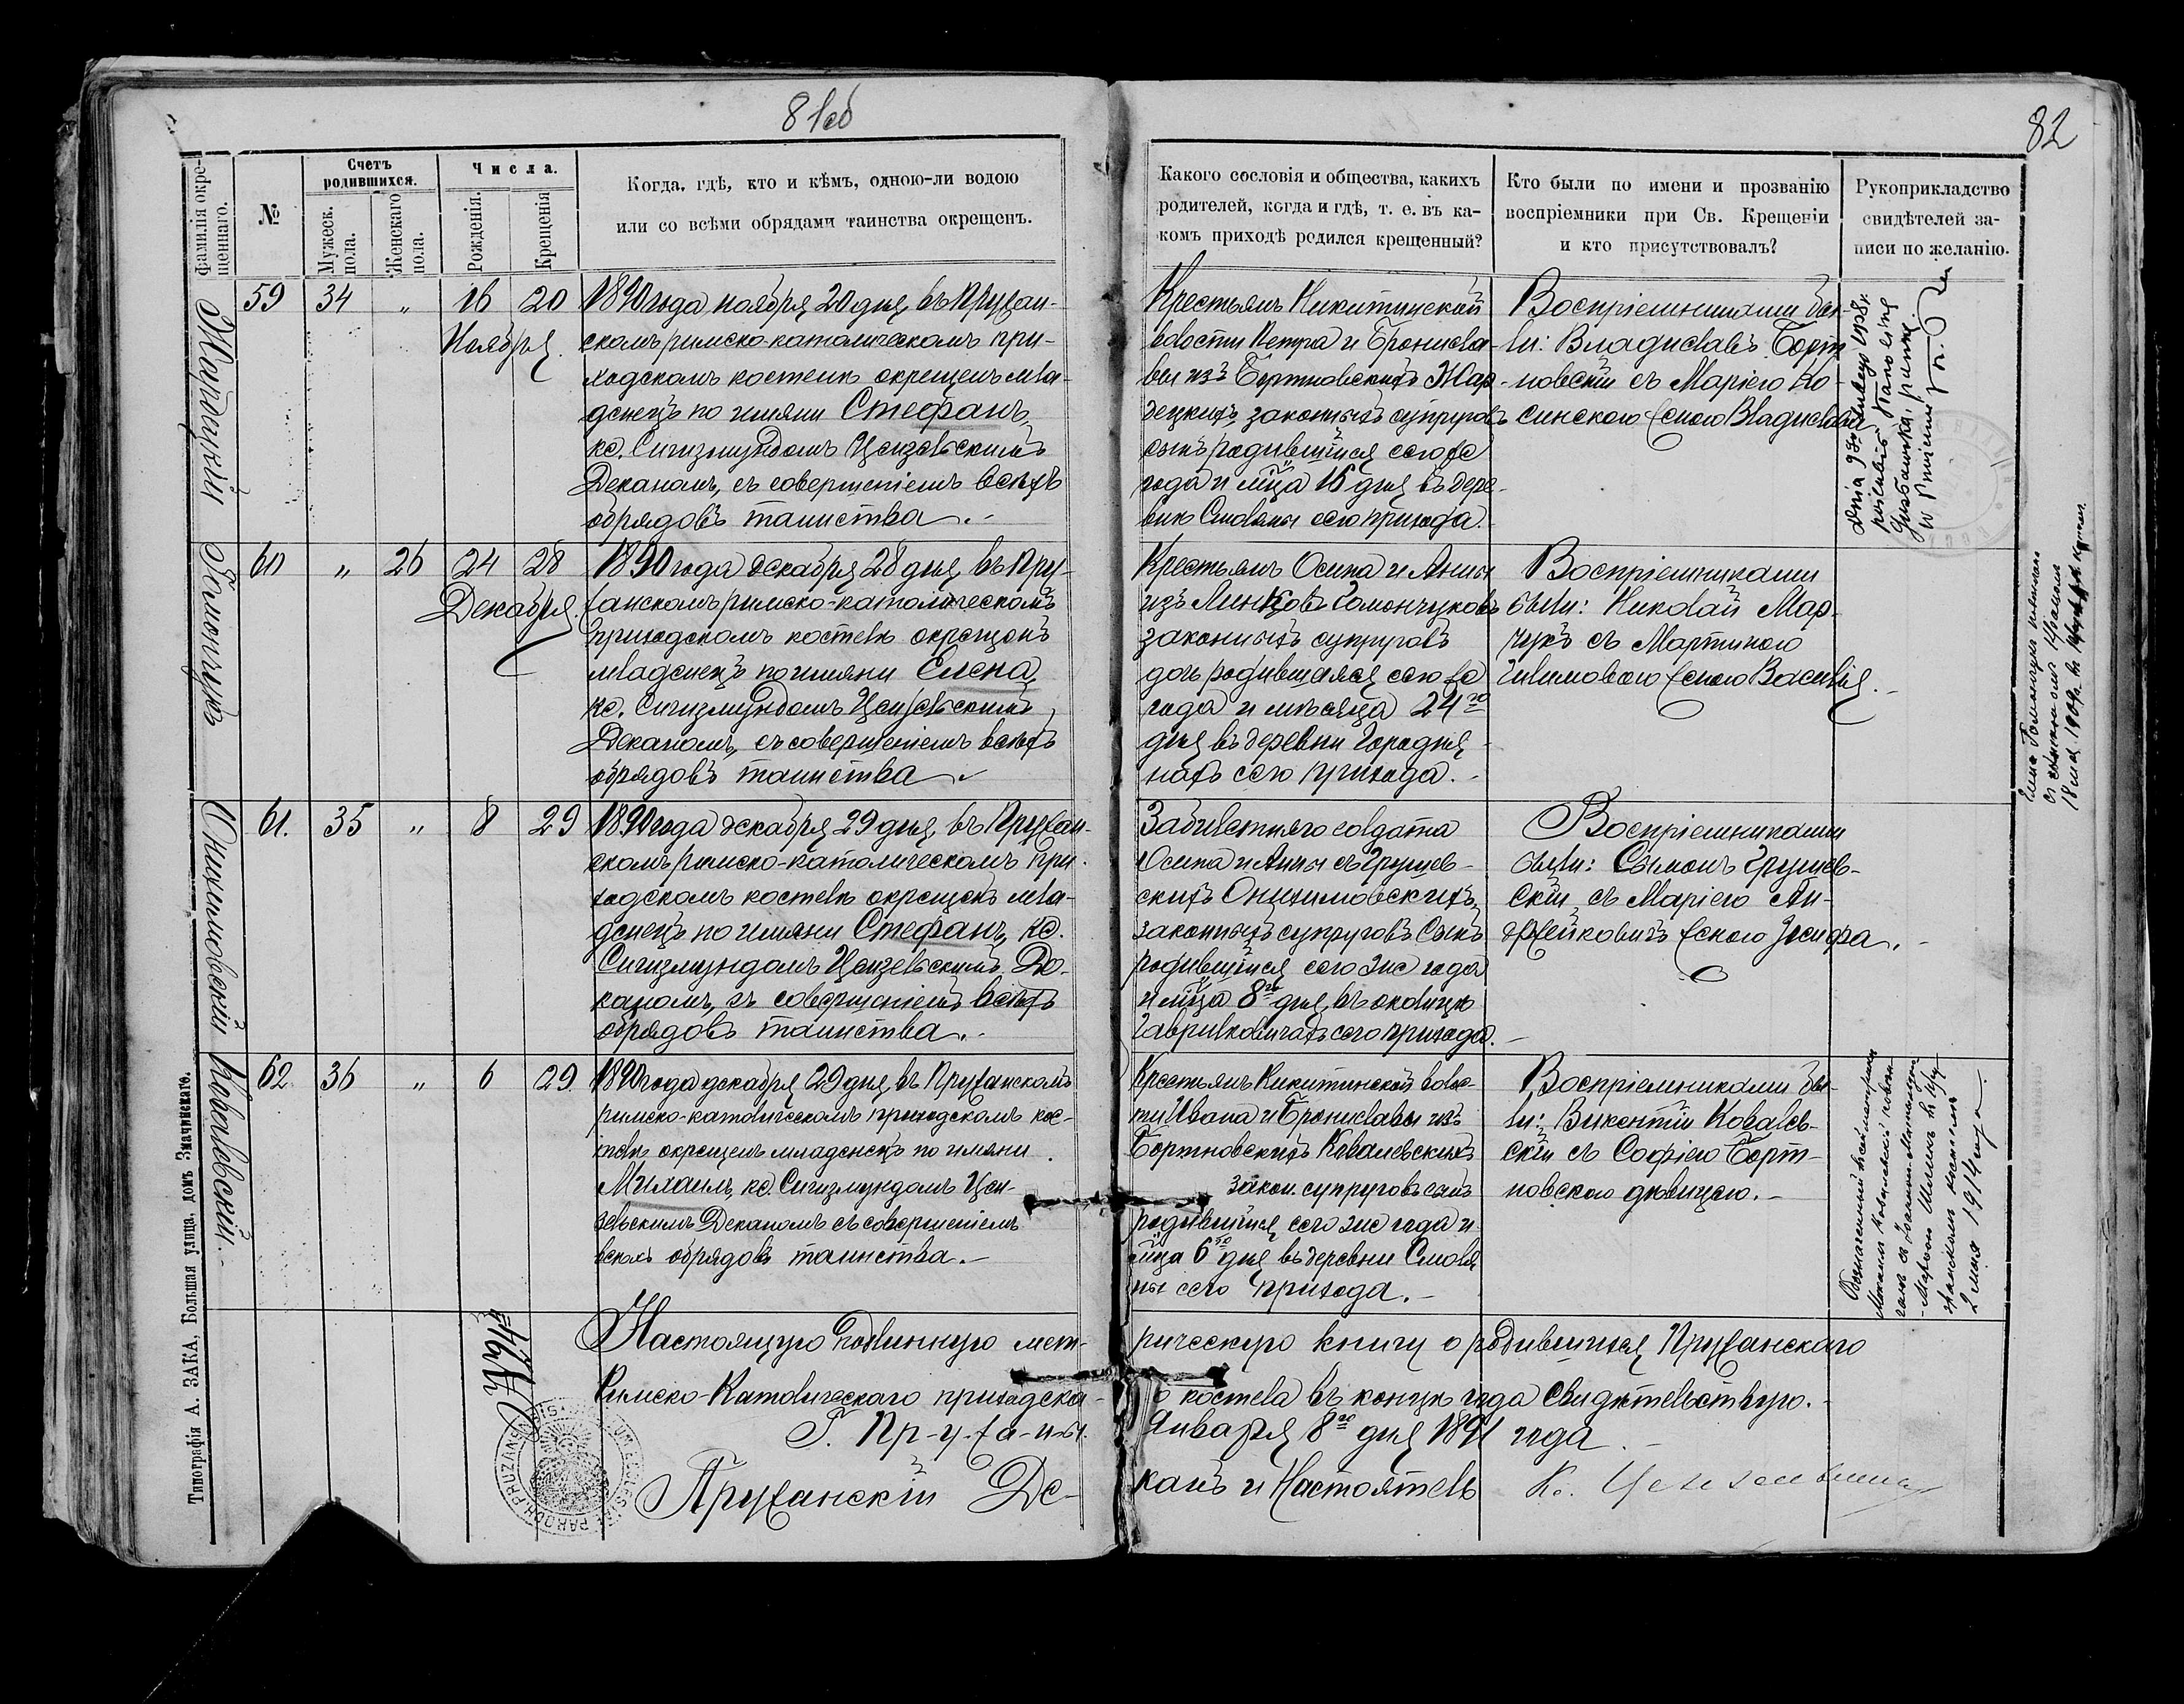 81об
82
Фамилія окре-
щеннаго.
№
Счетъ
родившихся.
Мужеск.
пола.
Женскаго
пола.
Числа.
Рожденія.
Крещенія
Когда, гдѣ, кто и кѣмъ, одною-ли водою
или со всѣми обрядами таинства окрещенъ.
Какого сословія и общества, какихъ
родителей, когда и гдѣ, т. е. въ ка-
комъ приходѣ родился крещенный?
Кто были по имени и прозванію
воспріемники при Св. Крещеніи
и кто присутствовалъ?
Рукоприкладство
свидѣтелей за-
писи по желанію.
59 34 „ 16 20
Ноября.
1890 года ноября 20 дня въ Пружан-
скомъ римско-католическомъ при-
ходскомъ костелѣ окрещенъ мла-
денецъ по имяни Стефанъ,
кс. Сигизмундомъ Цеизевскимъ
Деканомъ, съ совершеніемъ всѣхъ
обрядовъ таинства.-
Крестьянъ Никитинской
волости Петра и Бронисла-
вы изъ Бортновскихъ
законныхъ супруговъ
сынъ родившійся сего же
года и м-ца 16 дня въ дере-
внѣ Смоляны сего прихода.
Воспріемниками бы-
ли: Владиславъ Борт-
новскій съ Маріею Ко-
синскою женою Владислава
Гомончукъ
60 „ 26 24 28
Декабря.
1890 года декабря 28 дня въ Пру-
жанскомъ римско-католическомъ
приходскомъ костелѣ окрещенъ
младенецъ по имяни Елена,
кс. Сигизмундомъ Цеизевскимъ
Деканомъ, съ совершеніемъ всѣхъ
обрядовъ таинства.
Крестьянъ Осипа и Анны
изъ Линковъ Гомончуковъ
законныхъ супруговъ
дочь родившаяся сего же
года и мѣсяца 24го
дня въ деревни Городня-
нахъ сего прихода.-
Воспріемниками
были: Николай Мар-
чукъ съ Мартиною
женою Василія.-
Онихимовскій
61. 35 „ 8 29
1890 года декабря 29 дня въ Пружан-
скомъ римско-католическомъ при-
ходскомъ костелѣ окрещенъ мла-
денецъ по имяни Стефанъ, кс.
Сигизмундомъ Цеизевскимъ Де-
каномъ, съ совершеніемъ всѣхъ
обрядовъ таинства.-
солдата
Осипа и Анны съ Грушев-
скихъ Онихимовскихъ
законныхъ супруговъ сынъ
родившійся сего же года
и м-ца 8го дня въ околицѣ
Гавриловичахъ сего прихода.-
Воспріемниками
были: Сымонъ Грушев-
скій съ Маріею Ан-
женою Іосифа.-
Ковалевскій.
62 36 „ 6 29
1890 года декабря 29 дня въ Пружанскомъ
римско-католическомъ приходскомъ кос-
телѣ окрещенъ младенецъ по имяни
Михаилъ, кс. Сигизмундомъ Цеи-
зевскимъ Деканомъ съ совершеніемъ
всѣхъ обрядовъ таинства.-
Крестьянъ Никитинской волос-
ти Ивана и Брониславы изъ
Бортновскихъ Ковалевскихъ
закон. супруговъ сынъ
родившійся сего же года и
м-ца 6го дня въ деревни Смоля
ны сего прихода.-
Воспріемниками бы-
ли: Викентій Ковалев-
скій съ Софіею Борт-
новскою дѣвицею.-
2 мая 1914 года
Настоящую подлинную мет-
рическую книгу о родившихся Пружанскаго
Римско-Католическаго приходска-
го костела въ концѣ года свидѣтельствую.-
Г. Пр-у-жа-ны.
Января 8го дня 1891 года.-
Пружанскій Де-
канъ и Настоятель
Типографія А. ЗАКА, Большая улица, домъ Значинскаго.